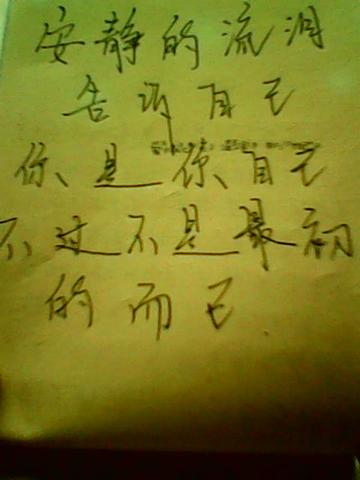 安静的流泪
告诉自己
你、是你、自己
不过不是最初
的而已